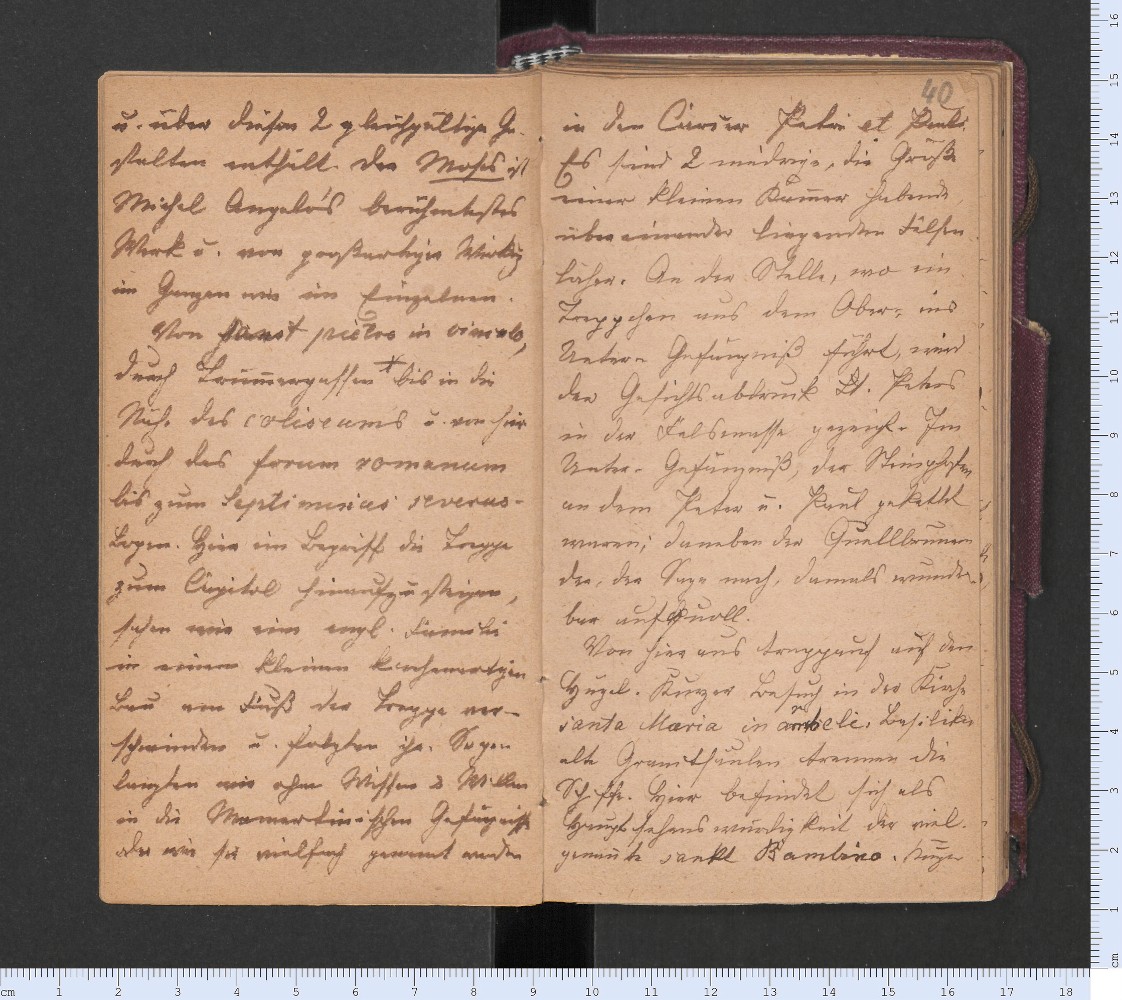 u. über diesen 2 gleichgültige Ge-
stalten enthält. Der Moses ist
Michel Angelo's berühmtestes
Werk u. von großartiger Wirkg
im Ganzen wie im Einzelnen.
Von sanct pietro in vincolo,
durch Trümmergassen bis in die
Näh. des coliseums u. von hier
durch das forum romanum
bis zum Septimius severus-
bogen. Hier im Begriff die Treppe
zum Capitol hinaufzusteigen,
sehen wir eine engl. Familie
in einem kleinen kirchenartigen
Bau am Fuß der Treppe ver-
schwinden u. folgten ihr. So ge-
langten wir ohne Wissen & Willen
in die Mamertinischen Gefängnisse
oder wie sie vielfach genannt werden
40
in den Carcer Petri et Pauli.
Es sind 2 niedrige, die Größe
einer kleinen Kammer habende
übereinander liegenden Felsen
löcher. An der Stelle, wo ein
Treppchen aus dem Ober- ins
Unter- Gefängniß führt, wird
der Gesichtsabdruck St. Peters
in der Felsmasse gezeigt. Im
Unter- Gefängniß, der Steinpfosten
an dem Peter u. Paul gekettet
waren; daneben der Quellbrunnen
der, der Sage nach, damals wunder-
bar aufquoll.
Von hier aus treppauf auf den
Hügel. Kurzer Besuch in der Kirche
santa Maria in araceli. Basilika
alte Granitsäulen trennen die
Schiffe. Hier befindet sich als
Hauptsehenswürdigkeit der viel-
genannte sankt Bambino.